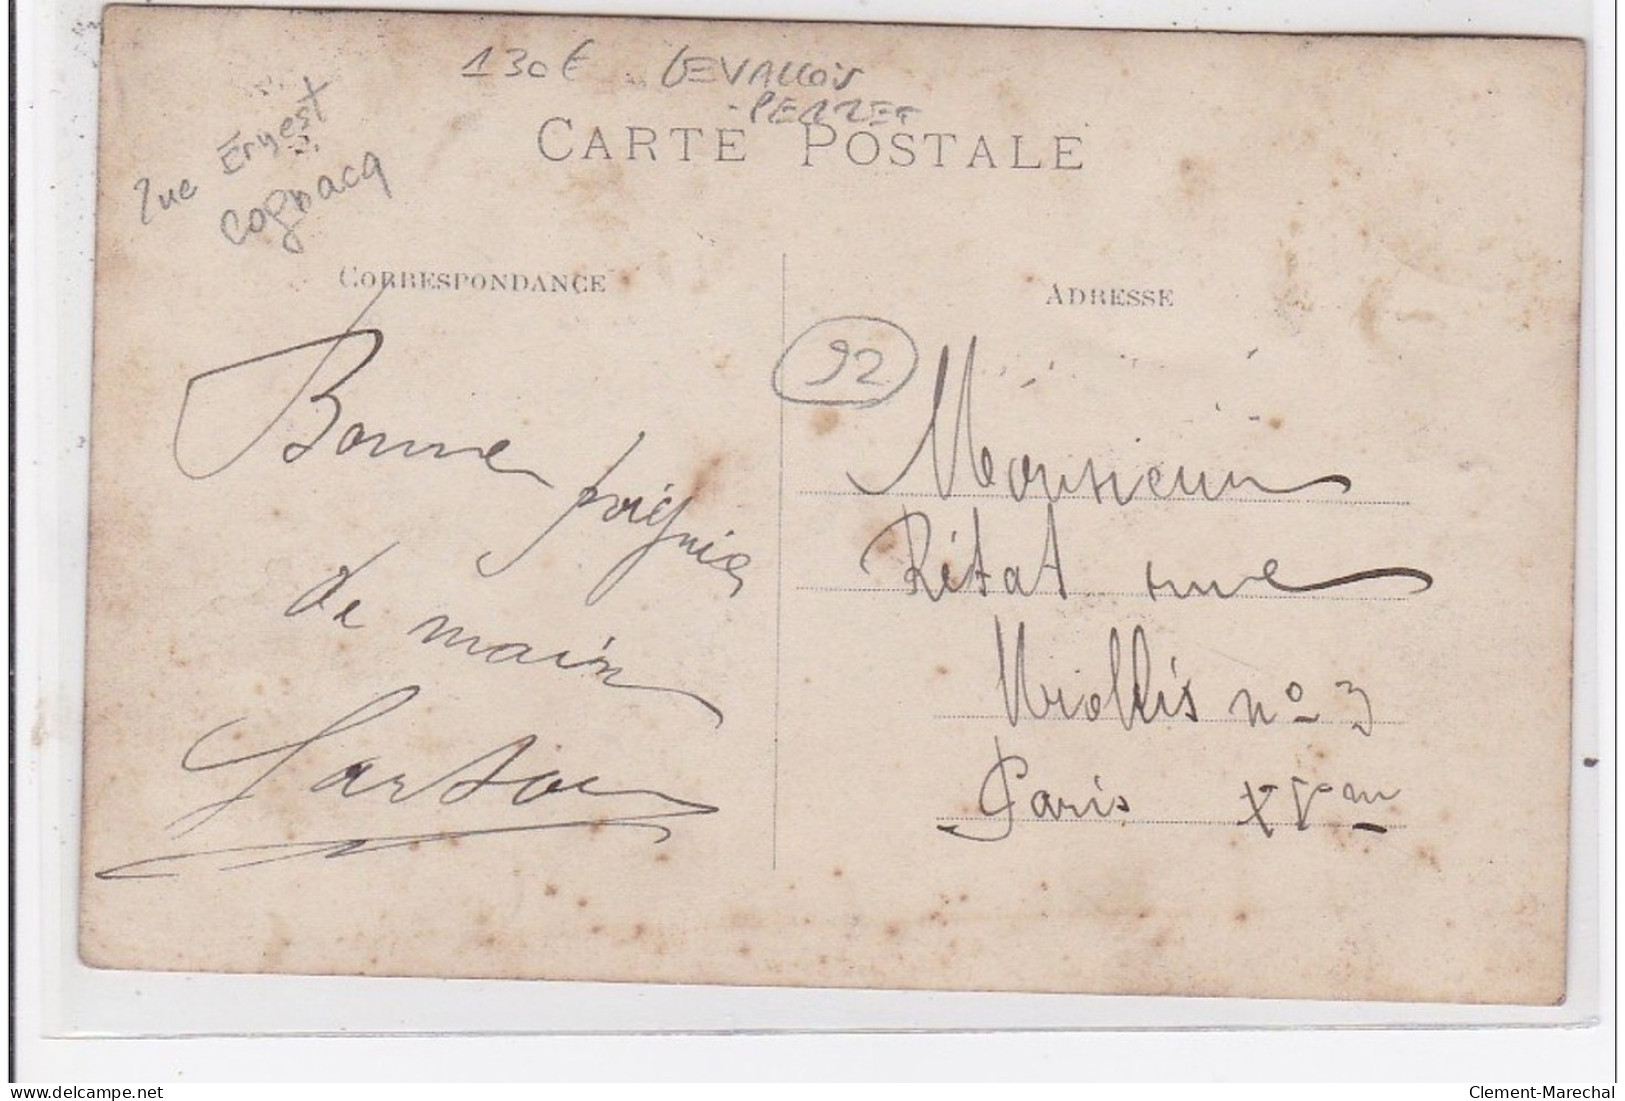 130€ LEVALLOIS
-PERRET
CARTE POSTALE
rue Ernest
?
Cognacq
CORRESPONDANCE
ADRESSE
92
Bonne poignée
de main
Monsieur
Ritat rue
Miollis nº 3
Paris XVem
delcampe.net
Clement-Marechal